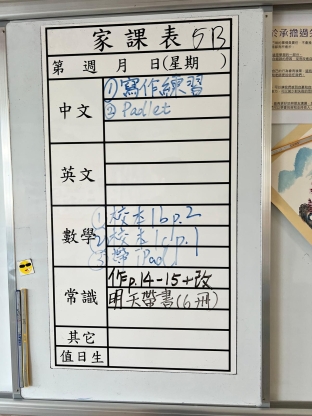 家課表 5B
第 週 月 日(星期 )
中文 ①寫作練習
②Padlet
英文
數學 ①校本1b p.2
2校本1c p.1
③帶iPad
常識 作p.14-15+改
明天帶書(6冊)
其它
值日生